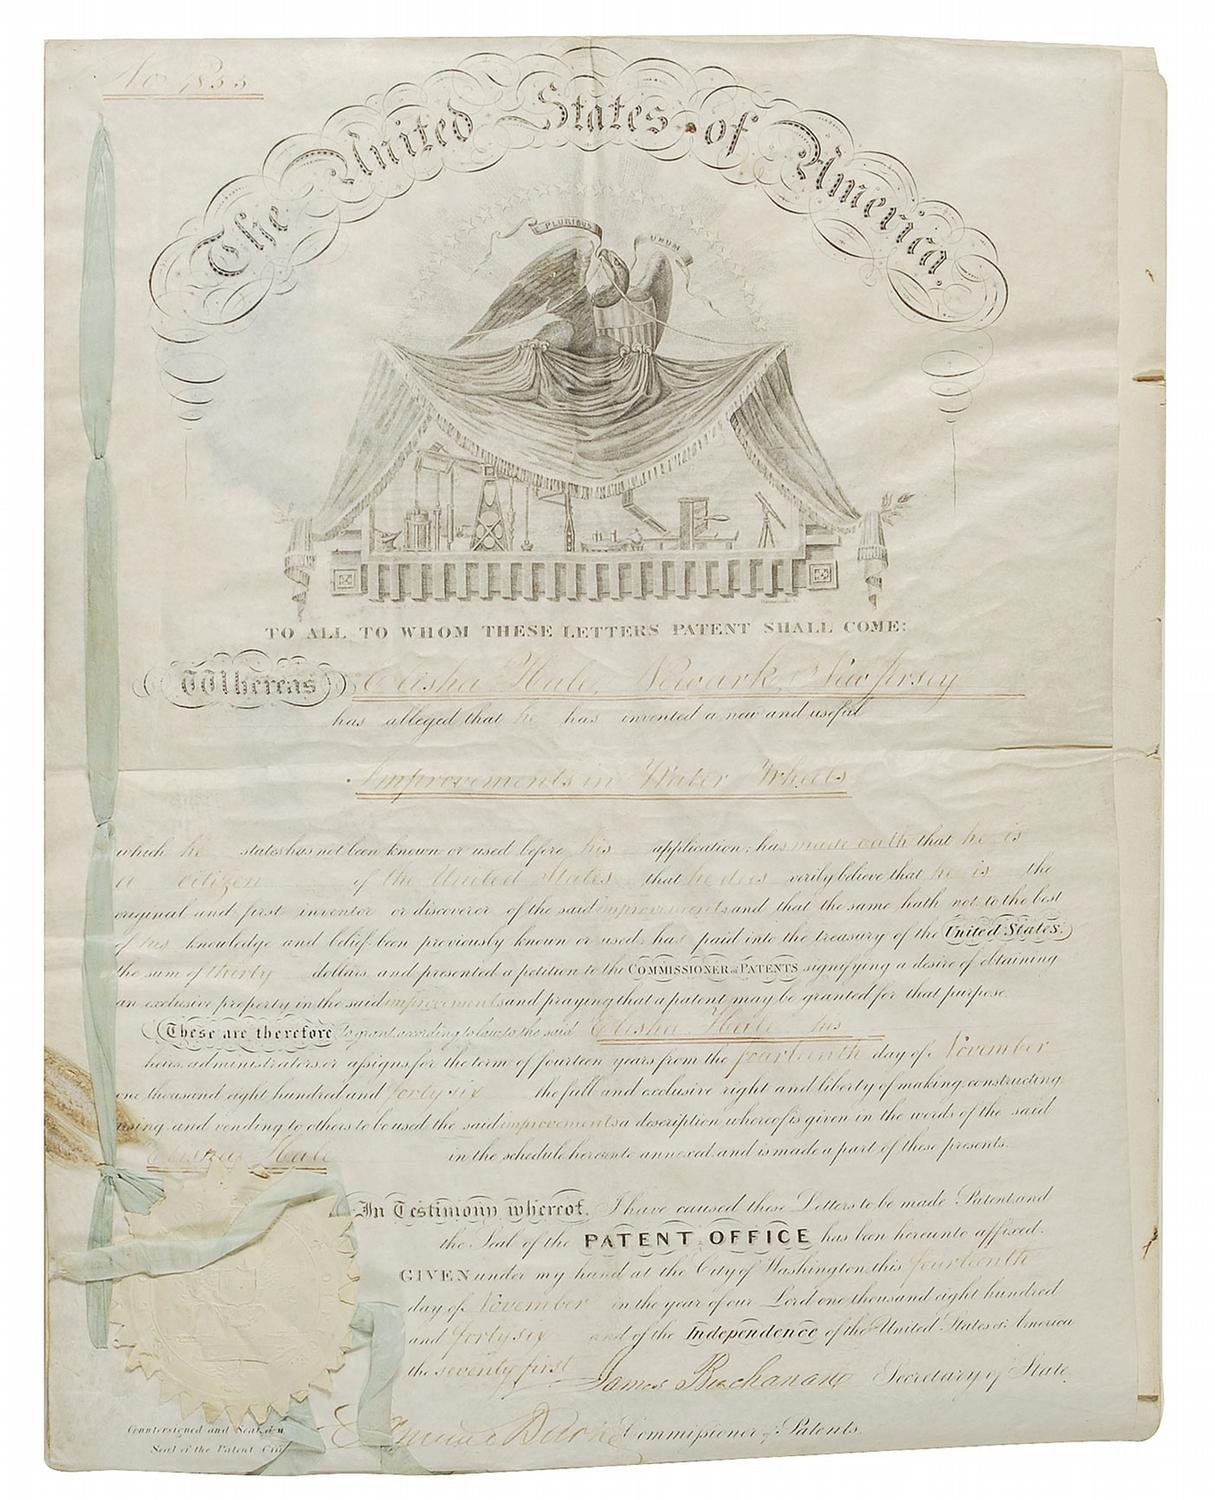 The United States of America.
PLURIBUS
UNUM
TO ALL TO WHOM THESE LETTERS PATENT SHALL COME:
Whereas Elisha Hale, Newark, New Jersey
has alleged that he has invented a new and useful
Improvements in Water Wheels
which he states has not been known or used before his application; has made oath that he is
a citizen of the United States that he does verily believe that he is the
original and first inventor or discoverer of the said improvements and that the same hath not to the best
of his knowledge and belief been previously known or used; has paid into the treasury of the United States,
the sum of thirty dollars, and presented a petition to the COMMISSIONER of PATENTS signifying a desire of obtaining
an exclusive property in the said improvements and praying that a patent may be granted for that purpose.
These are therefore to grant according to law to the said Elisha Hale his
heirs administrators or assigns for the term of fourteen years from the fourteenth day of November
one thousand eight hundred and forty six the full and exclusive right and liberty of making, constructing,
using and vending to others to be used the said improvements a description whereof is given in the words of the said
Elisha Hale in the schedule hereunto annexed and is made a part of these presents.
In Testimony whereof, I have caused these Letters to be made Patent and
the Seal of the PATENT OFFICE has been hereunto affixed
GIVEN under my hand at the City of Washington, this fourteenth
day of November in the year of our Lord one thousand eight hundred
and forty six and of the Independence of the United States of America
the seventy first James Buchanan Secretary of State.
Countersigned and Sealed
Commissioner of Patents.
Seal of the Patent